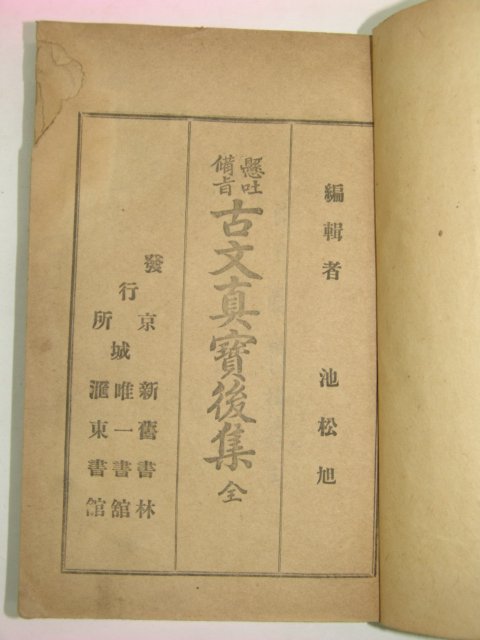 編輯者 池松旭
懸吐
備旨
古文真寶後集 全
發行所
京城
新舊書林
唯一書舘
滙東書舘